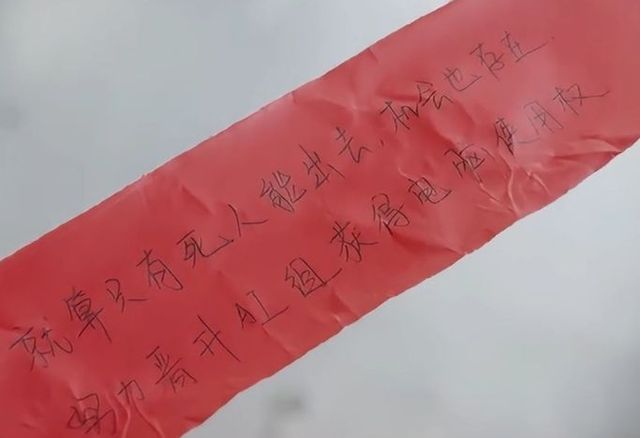 就算只有死人能出去，机会也存在.
努力晋升AI组获得电脑使用权